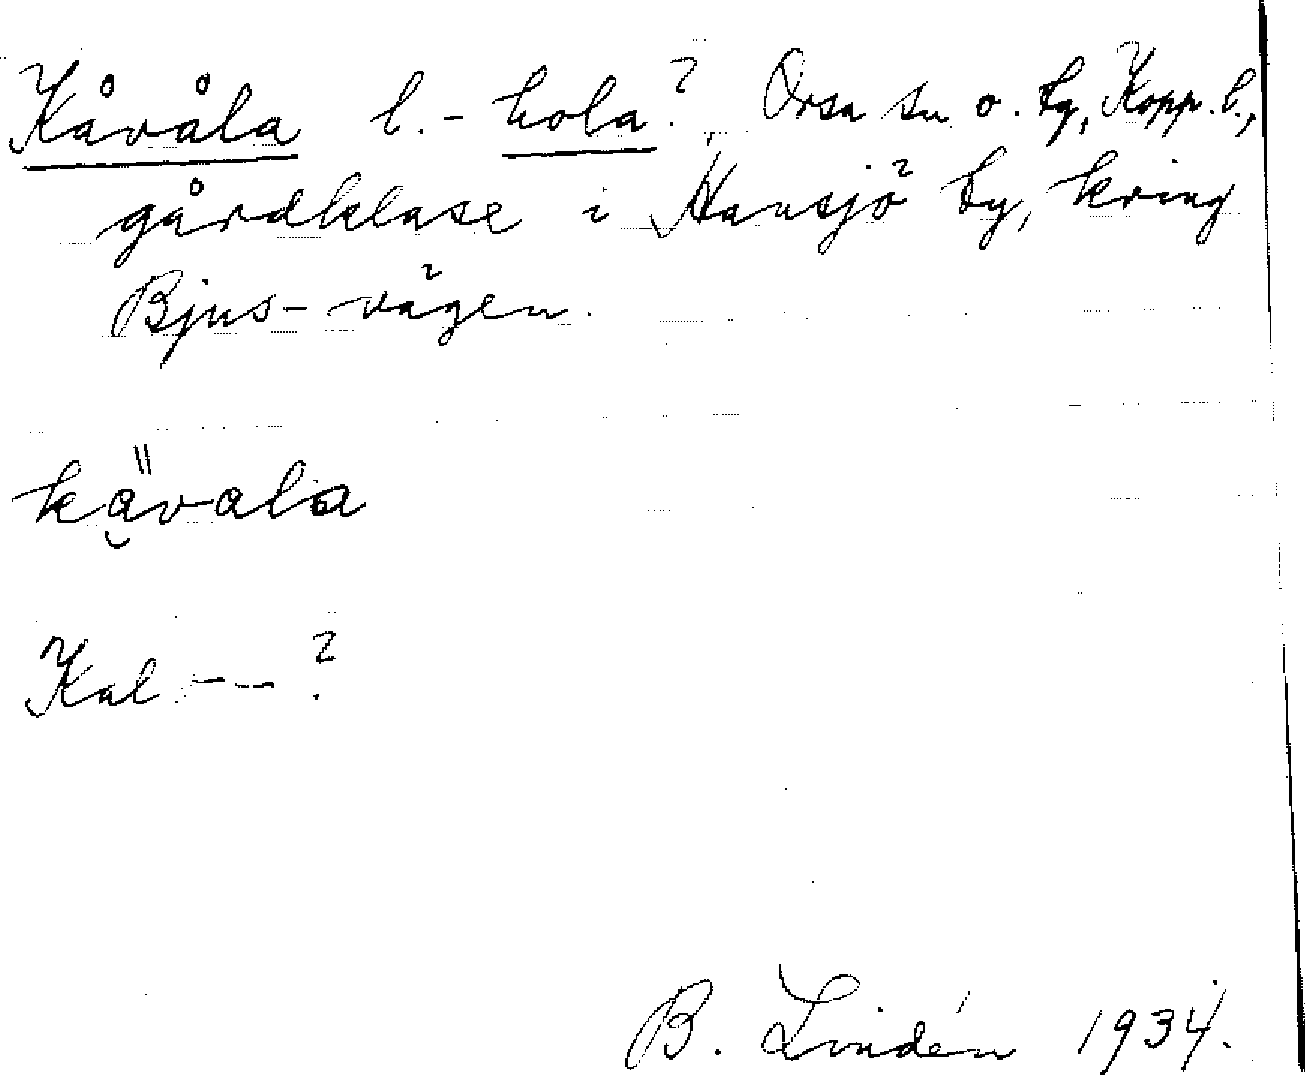 Kåvåla l. - hola? Orsa sn o. tg, Kopp. l.,
gårdklase i Hansjö by, kring
Bjus-vägen.
kävala
Kal --?
B. Lindén 1934.